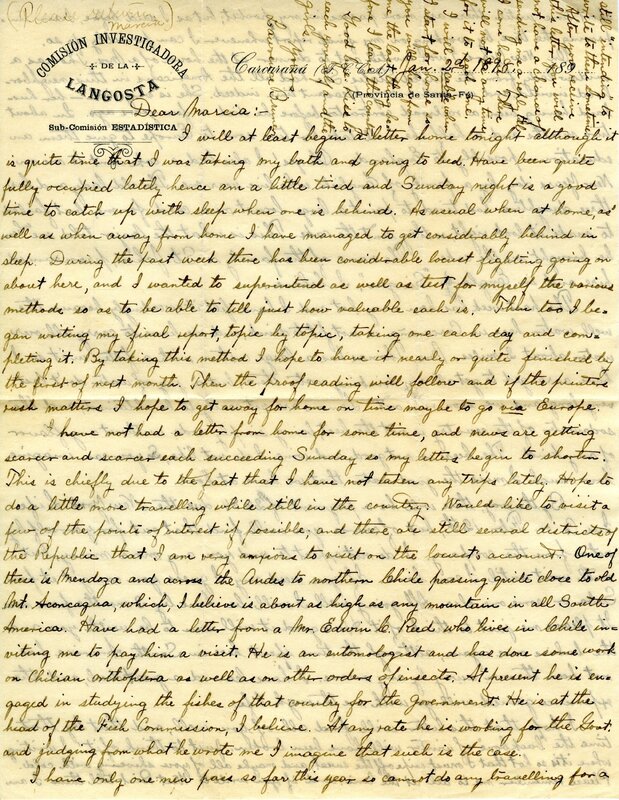 (Please return
Marcia)
COMISIÓN INVESTIGADORA
DE LA
LANGOSTA
Sub-Comisión ESTADÍSTICA
Carcarañá (F. C. C. A.) Jan. 2d, 1898. 189
(Provincia de Santa-Fé)
Dear Marcia:-
I will at least begin a letter home tonight although it
is quite time that I was taking my bath and going to bed. Have been quite
fully occupied lately hence am a little tired and Sunday night is a good
time to catch up with sleep when one is behind. As usual when at home, as
well as when away from home I have managed to get considerably behind in
sleep. During the past week there has been considerable locust fighting going on
about here, and I wanted to superintend as well as test for myself the various
methods so as to be able to tell just how valuable each is. Then too I be-
gan writing my final report, topic by topic, taking one each day and com-
pleting it. By taking this method I hope to have it nearly or quite finished by
the first of next month. Then the proof reading will follow and if the printers
rush matters I hope to get away for home on time maybe to go via Europe.
I have not had a letter from home for some time, and news are getting
scarcer and scarcer each succeeding Sunday so my letters begin to shorten.
This is chiefly due to the fact that I have not taken any trips lately. Hope to
do a little more travelling while still in the country. Would like to visit a
few of the points of interest if possible; and there are still several districts of
the Republic that I am very anxious to visit on the locusts account. One of
these is Mendoza and across the Andes to northern Chile passing quite close to old
Mt. Aconcagua, which, I believe is about as high as any mountain in all South
America. Have had a letter from a Mr. Edwin C. Reed who lives in Chile in-
viting me to pay him a visit. He is an entomologist and has done some work
on Chilian orthoptera as well as on other orders of insects. At present he is en-
gaged in studying the fishes of that country for the Government. He is at the
head of the Fish Commission, I believe. At any rate he is working for the Govt.
and judging from what he wrote me I imagine that such is the case.
I have only one new pass so far this year so cannot do any travelling for a
still intending to
write to the
After you receive
this letter you will
not have a chance
Good bye. Kiss to
each and
girls.
Lawrence Bruner